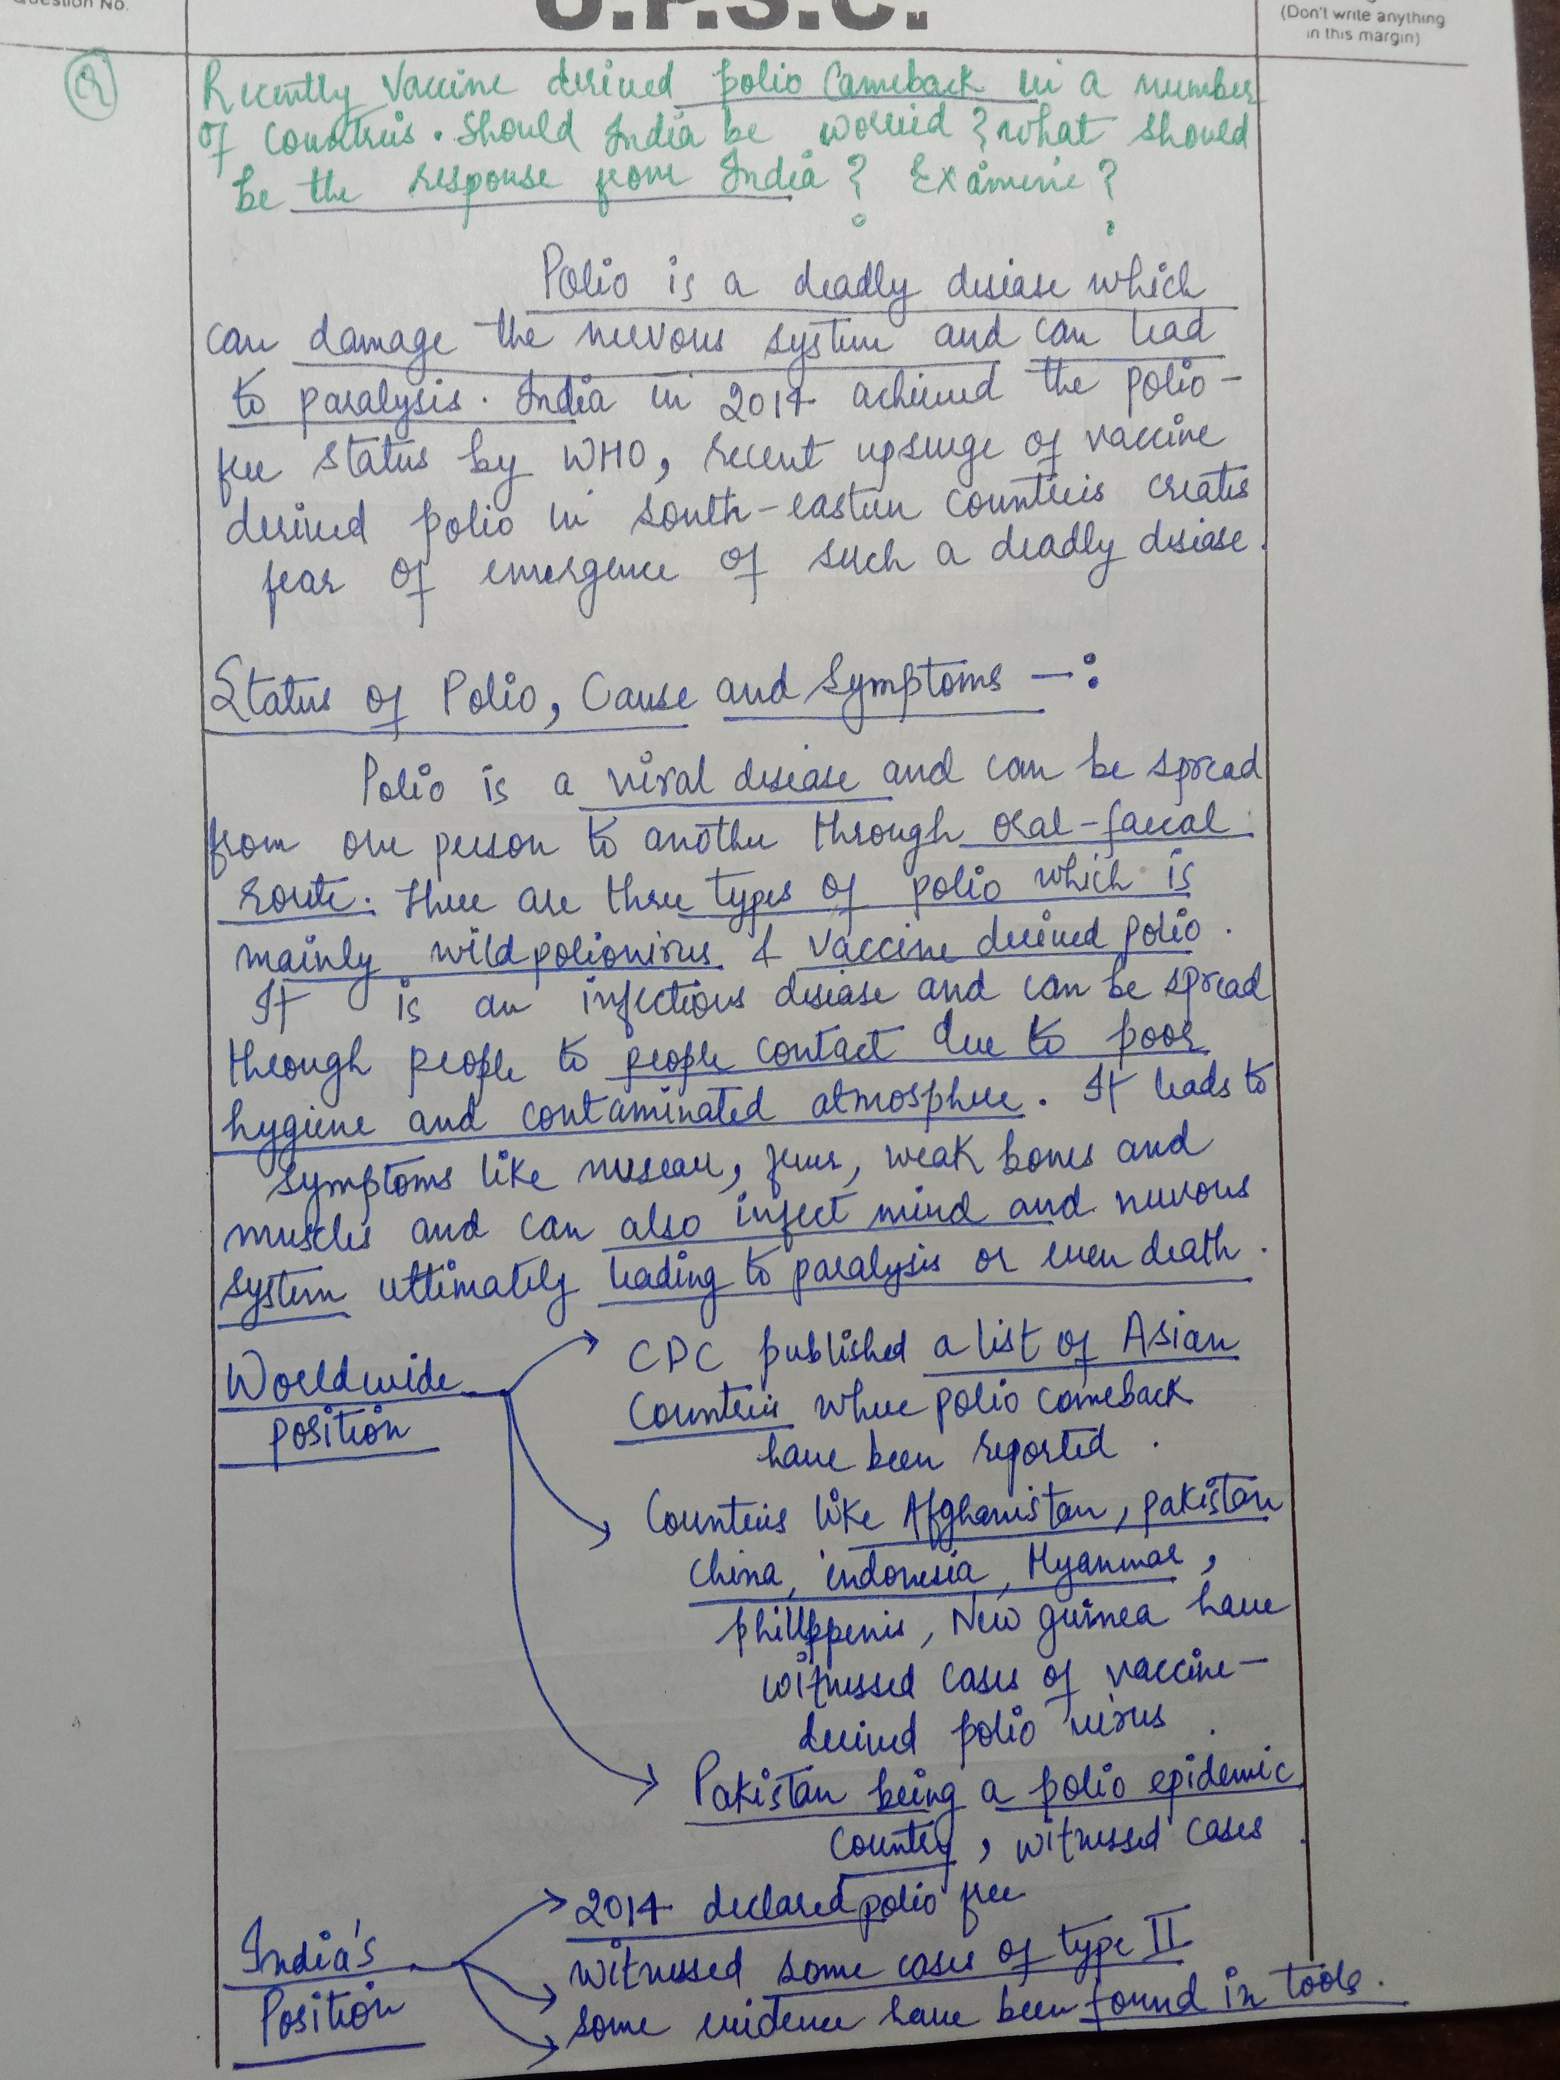 Question No.
U.P.S.C.
(Don't write anything
in this margin)
Q
Recently Vaccine derived polio Comeback in a number
of countries. Should India be worried? what should
be the response from India? Examine?
Polio is a deadly disease which
can damage the nervous system and can lead
to paralysis. India in 2014 achieved the polio-
free status by WHO, recent upsurge of vaccine
derived polio in south-eastern countries creates
fear of emergence of such a deadly disease.
Status of Polio, Cause and Symptoms -:
Polio is a viral disease and can be spread
from one person to another through oral-faecal
route. There are three types of polio which is
mainly wild poliovirus & vaccine derived polio.
It is an infectious disease and can be spread
through people to people contact due to poor
hygiene and contaminated atmosphere. It leads to
symptoms like fever, weak bones and
muscles and can also infect mind and nervous
system ultimately leading to paralysis or even death.
Worldwide
position
CDC published a list of Asian
Countries where polio comeback
have been reported.
Countries like Afghanistan, pakistan
china, indonesia, Myanmar,
phillppenis, New guinea have
witnessed cases of vaccine-
derived polio virus.
Pakistan being a polio epidemic
country, witnessed cases.
India's
Position
2014 declared polio free
witnessed some cases of type II
some evidence have been found in tools.